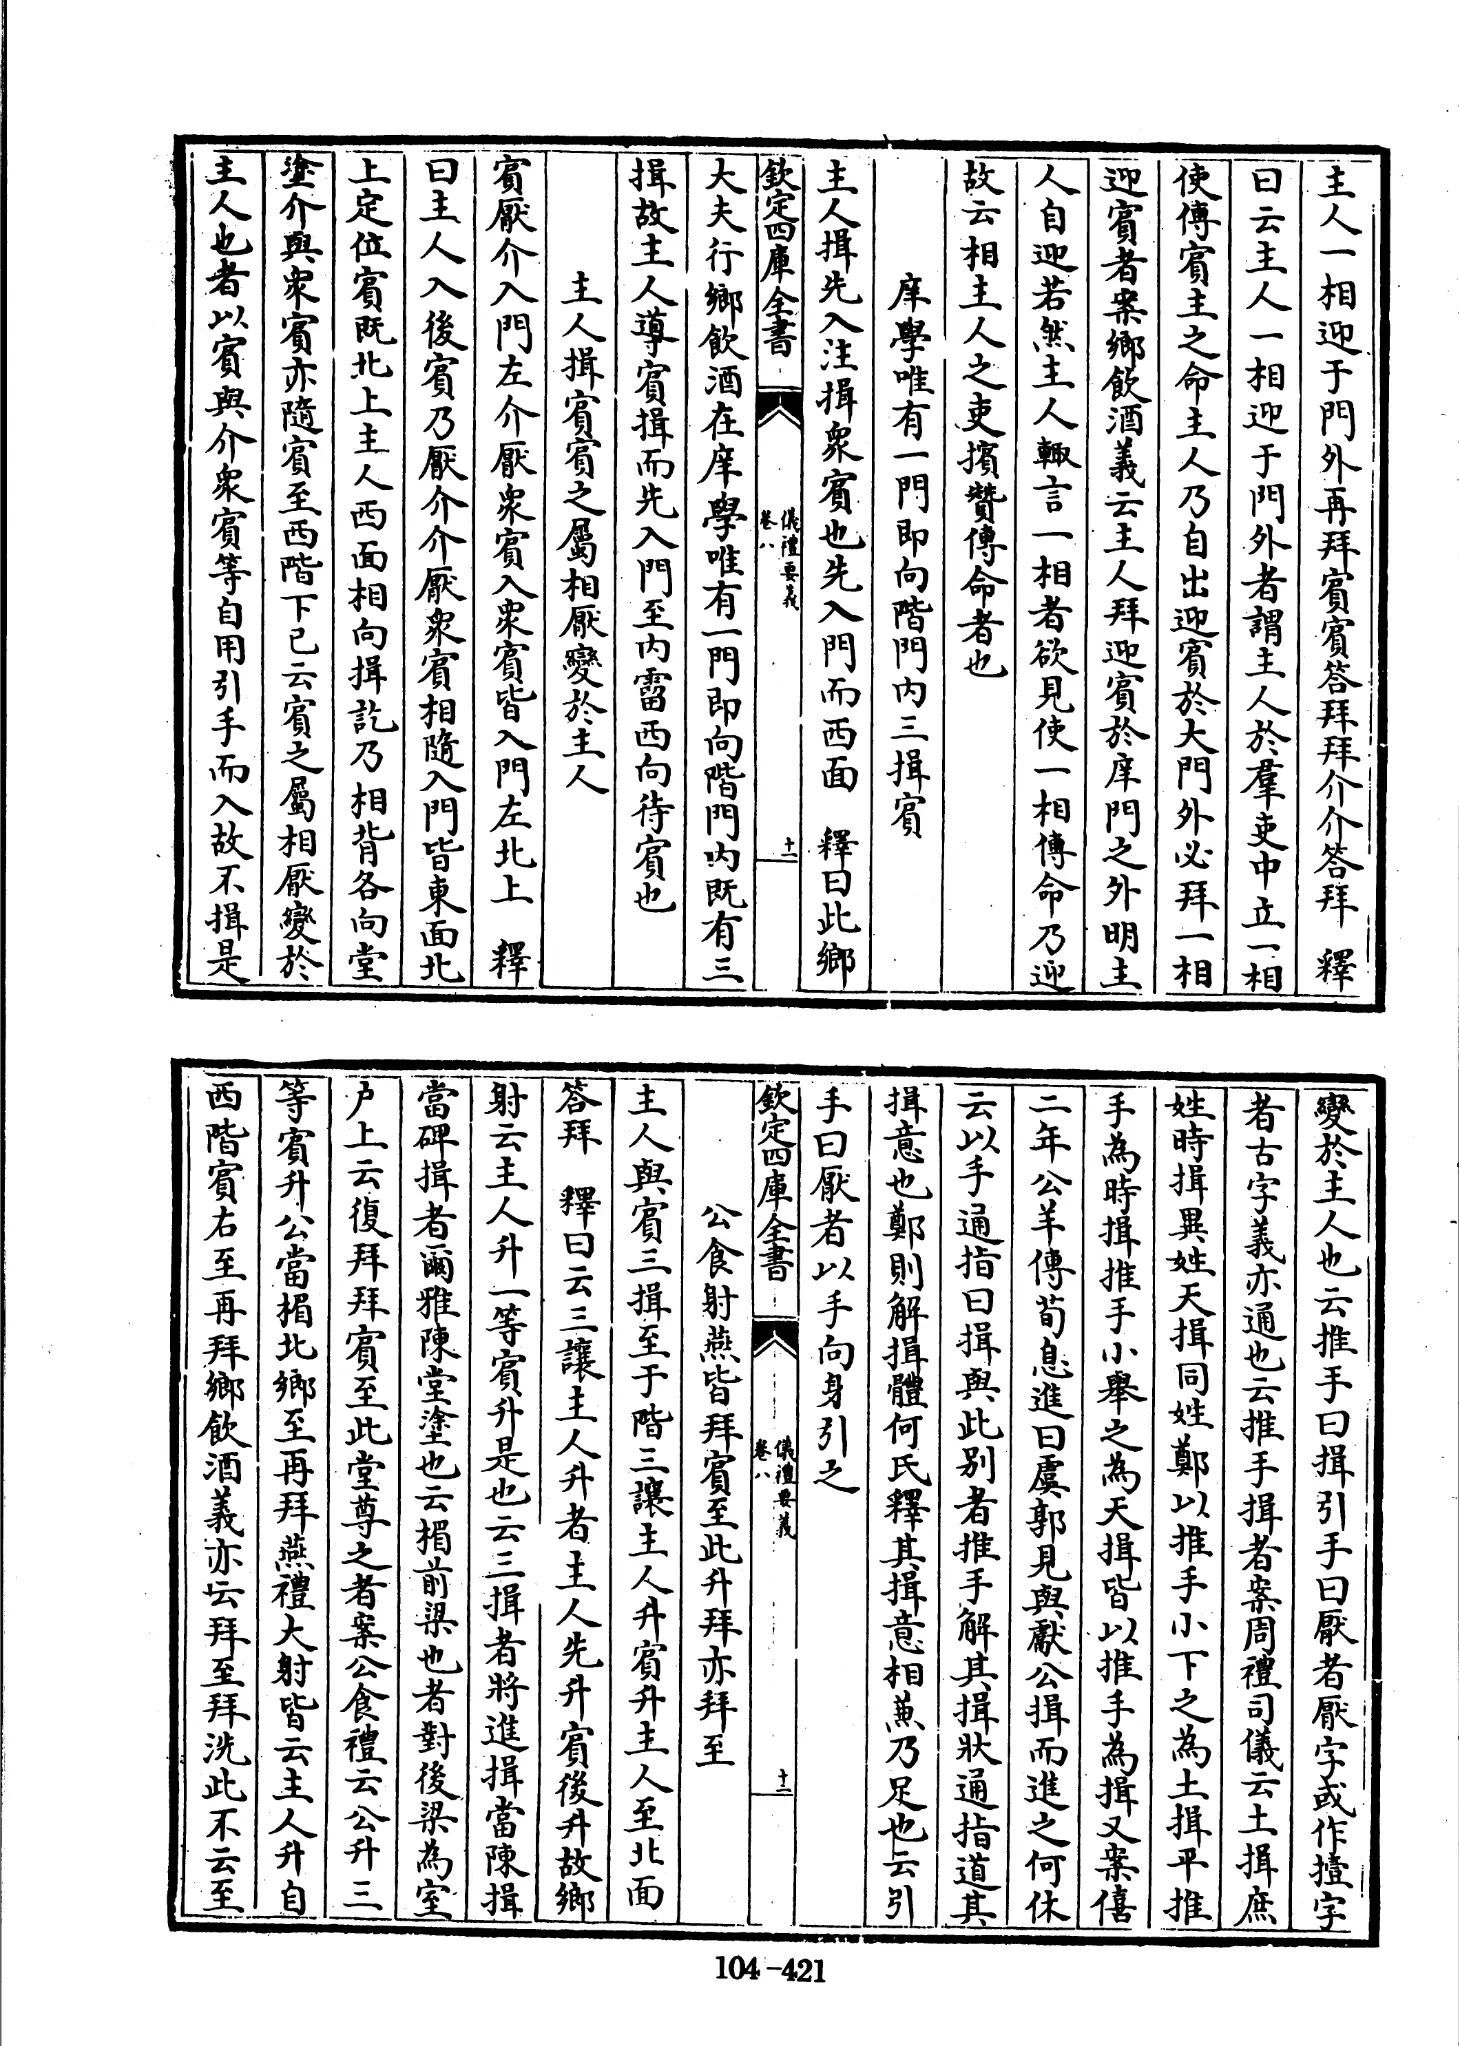 主人一相迎于門外再拜賓賓答拜拜介介答拜　釋
曰云主人一相迎于門外者謂主人於羣吏中立一相
使傳賓主之命主人乃自出迎賓於大門外必拜一相
迎賓者案鄉飲酒義云主人拜迎賓於庠門之外明主
人自迎若然主人輙言一相者欲見使一相傳命乃迎
故云相主人之吏擯贊傳命者也
庠學唯有一門即向階門内三揖賓
主人揖先入注揖衆賓也先入門而西面　釋曰此鄉
欽定四庫全書
儀禮要義
卷八
十一
大夫行鄉飲酒在庠學唯有一門即向階門内既有三
揖故主人導賓揖而先入門至内霤西向待賓也
主人揖賓賓之屬相厭變於主人
賓厭介入門左介厭衆賓入衆賓皆入門左北上　釋
曰主人入後賓乃厭介介厭衆賓相隨入門皆東面北
上定位賓既北上主人西面相向揖訖乃相背各向堂
塗介與衆賓亦隨賓至西階下已云賓之屬相厭變於
主人也者以賓與介衆賓等自用引手而入故不揖是
變於主人也云推手曰揖引手曰厭者厭字或作擪字
者古字義亦通也云推手揖者案周禮司儀云土揖庶
姓時揖異姓天揖同姓鄭以推手小下之為土揖平推
手為時揖推手小舉之為天揖皆以推手為揖又案僖
二年公羊傳荀息進曰虞郭見與獻公揖而進之何休
云以手通指曰揖與此别者推手解其揖狀通指道其
揖意也鄭則解揖體何氏釋其揖意相兼乃足也云引
手曰厭者以手向身引之
欽定四庫全書
儀禮要義
卷八
十二
公食射燕皆拜賓至此升拜亦拜至
主人與賓三揖至于階三讓主人升賓升主人至北面
答拜　釋曰云三讓主人升者主人先升賓後升故鄉
射云主人升一等賓升是也云三揖者將進揖當陳揖
當碑揖者爾雅陳堂塗也云楣前梁也者對後梁為室
户上云復拜拜賓至此堂尊之者案公食禮云公升三
等賓升公當楣北鄉至再拜燕禮大射皆云主人升自
西階賓右至再拜鄉飲酒義亦云拜至拜洗此不云至
104-421